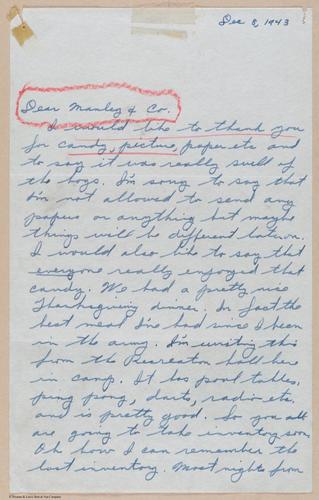 Dec 8, 1943
Dear Manley & Co.
I would like to thank you
for candy, picture, paper etc and
to say it was really swell of
the boys. I'm sorry to say that
I'm not allowed to send any
papers or anything but maybe
things will be different later on.
I would also like to say that
everyone really enjoyed that
candy. We had a pretty nice
Thanksgiving dinner. In fact the
best meal I've had since I been
in the army. I'm writing this
from the Recreation hall here
in camp. It has pool tables,
ping pong, darts, radio etc.
and is pretty good. So you all
are going to take inventory soon
Oh how I can remember the
last inventory. Most nights from